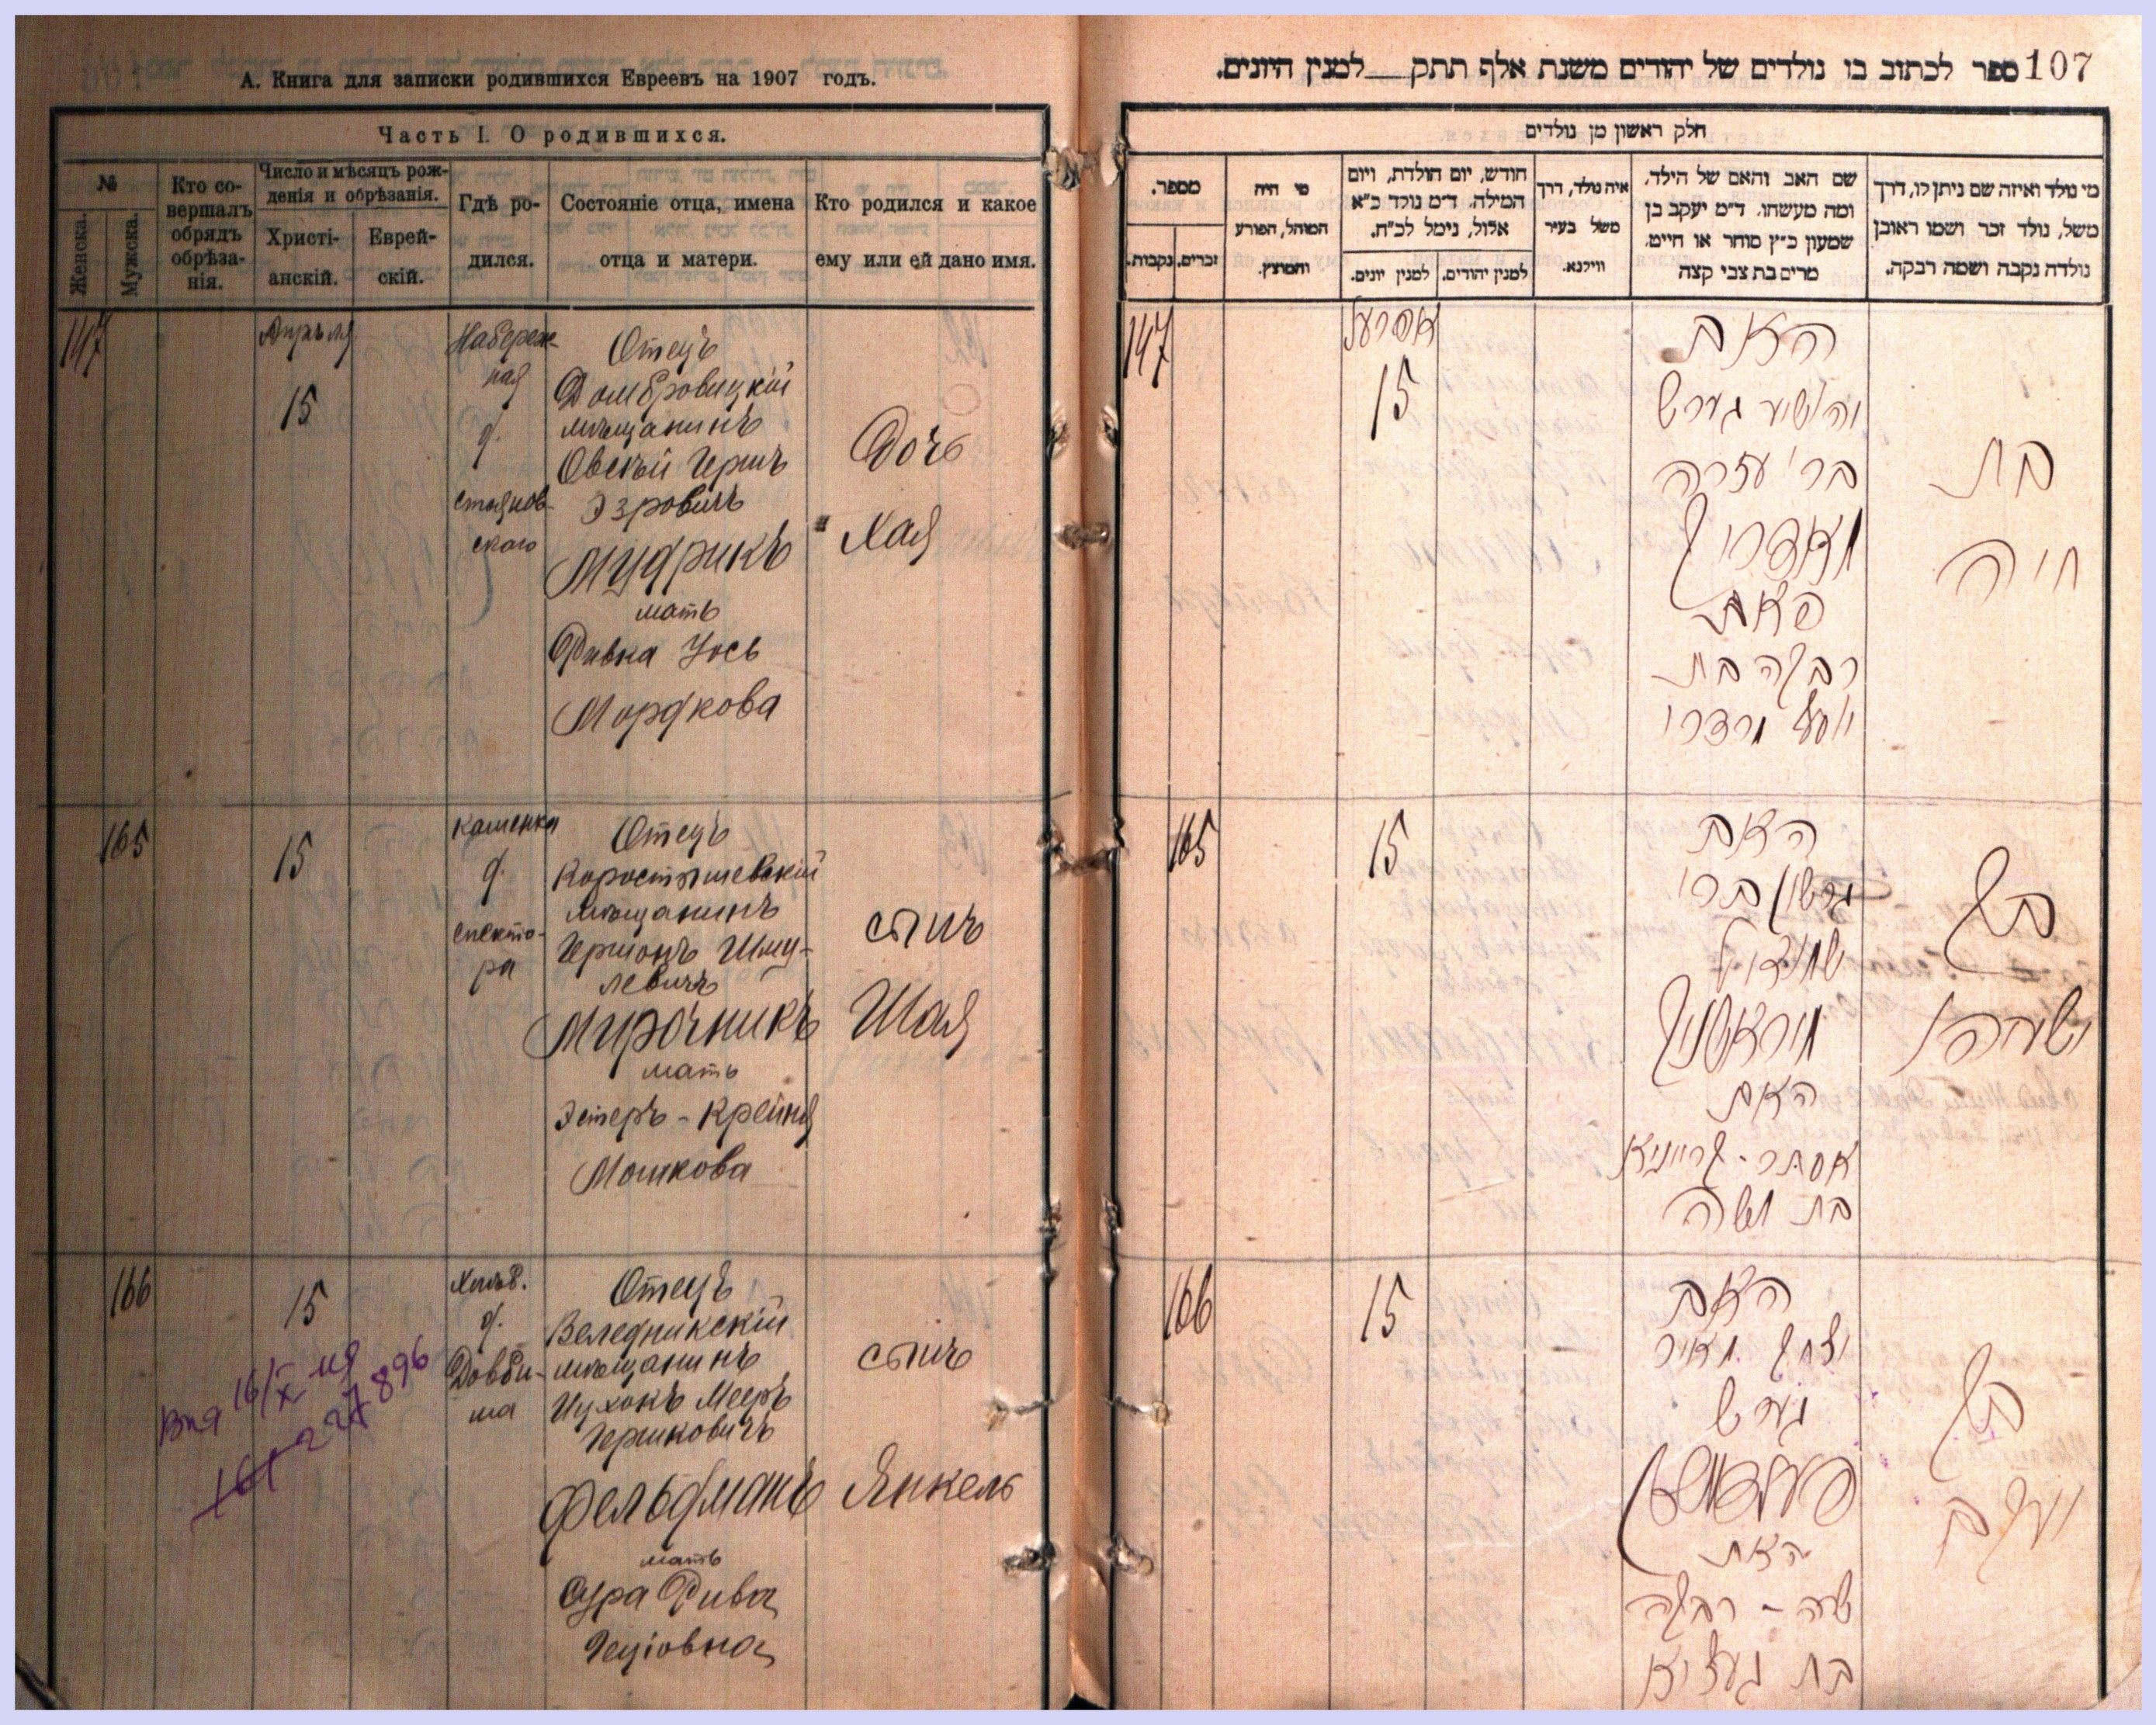 А. Книга для записки родившихся Евреевъ на 1907 годъ.
Часть I. О родившихся.
№
Женска.
Мужска.
Кто со-
вершалъ
обрядъ
обрѣза-
нія.
Число и мѣсяцъ рож-
денія и обрѣзанія.
Христі-
анскій.
Еврей-
скій.
Гдѣ ро-
дился.
Состояніе отца, имена
отца и матери.
Кто родился и какое
ему или ей дано имя.
147
Апрѣля
15
Набереж-
ная
д.
Отецъ
Домбровицкій
мѣщанинъ
Овсѣй Гершъ
Эзровичъ
Мудрикъ
мать
Ривка Уось
Мордкова
Дочь
Хая
165
15
Каменка
д.
спекто-
ра
Отецъ
Коростышевскій
мѣщанинъ
Гершонъ Шму-
левичъ
Мирочникъ
мать
Эстеръ - Крейня
Мошкова
сынъ
Шая
166
15
д.
Довби-
ша
Отецъ
Веледникскій
мѣщанинъ
Ицхокъ Мееръ
Гершковичъ
Фельдманъ
мать
Сура Рива
сынъ
Янкель
107
ספר לכתוב בו נולדים של יהודים משנת אלף תתק__למנין היונים.
חלק ראשון מן נולדים
מספר.
נקבות.
זכרים.
מי היה
המוהל, הפורע
והמוצץ.
חודש, יום הולדת, ויום
המילה. ד״מ נולד כ״א
אלול, נימל לכ״ח.
למנין יונים.
למנין יהודים.
איה נולד, דרך
משל בעיר
ווילנא.
שם האב והאם של הילד,
ומה מעשהו. ד״מ יעקב בן
שמעון כ״ץ סוחר או חייט.
מרים בת צבי קצה
מי נולד ואיזה שם ניתן לו, דרך
משל, נולד זכר ושמו ראובן
נולדה נקבה ושמה רבקה.
147
15
האב
בר׳ עזרה
האם
רבקה בת
בת
חיה
165
15
האב
גרשון בר׳
האם
אסתר - קריינא
בת משה
בן
ישעיהו
166
15
האב
יצחק מאיר
הערש
פעלדמאן
האם
שרה - רבקה
בן
יעקב